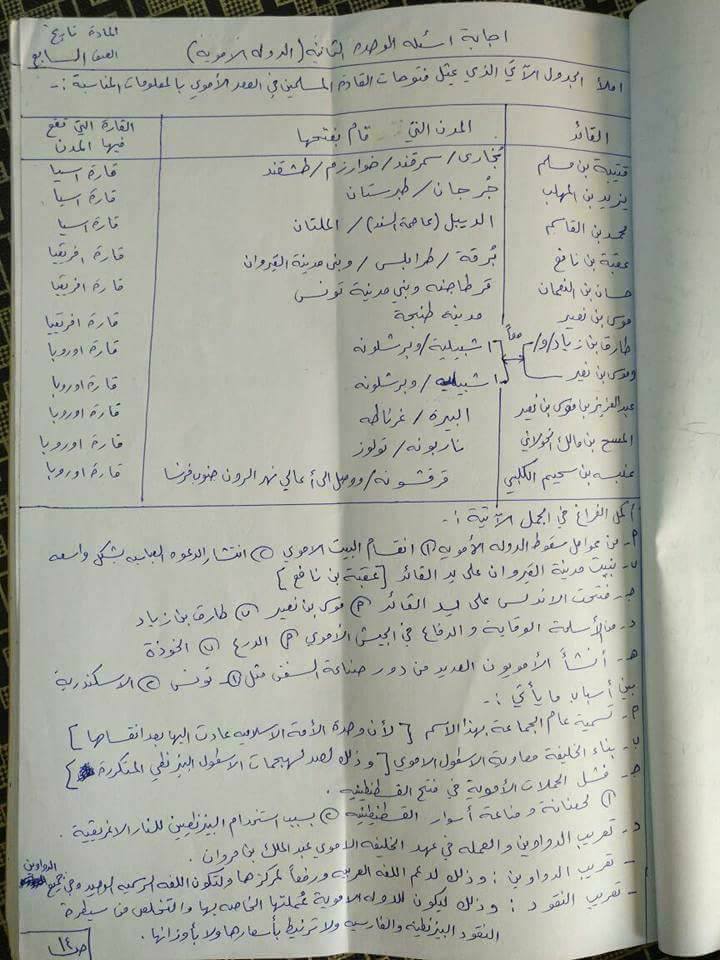 اجابة اسئلة الوحدة الثانية (الدولة الاموية)
المادة تاريخ
الصف السابع
املأ الجدول الآتي الذي يمثل فتوحات القادة المسلمين في العصر الأموي بالمعلومات المناسبة :-
القائد المدن التي قام بفتحها القارة التي تقع فيها المدن
قتيبة بن مسلم بُخارى/ سمرقند/ خوارزم/ طشقند قارة اسيا
يزيد بن المهلب جُرجان/ طبرستان قارة اسيا
محمد بن القاسم الديبل (عاصمة السند)/ الملتان قارة اسيا
عقبة بن نافع بُرقة/ طرابلس/ وبنى مدينة القيروان قارة افريقيا
حسان بن النعمان قرطاجنه وبنى مدينة تونس قارة افريقيا
موسى بن نصير مدينة طنجة قارة افريقيا
طارق بن زياد/و/ معاً اشبيلية/وبرشلونه قارة اوروبا
وموسى بن نصير اشبيليه/وبرشلونه قارة اوروبا
عبدالعزيز بن موسى بن نصير البيرة/ غرناطه قارة اوروبا
السمح بن مالك الخولاني ناربونه/ تولوز قارة اوروبا
عنبسه بن سحيم الكلبي قرقشونه/ ووصل الى أعالي نهر الرون جنوب فرنسا قارة اوروبا
اكمل الفراغ في الجمل الآتية :-
أ- من عوامل سقوط الدوله الأمويه ① انقسام البيت الاموي ② انتشار الدعوه العباسيه بشكل واسع
ب- بنيت مدينة القيروان على يد القائد [عقبة بن نافع]
جـ- فتحت الاندلس على يد القائد أ) موسى بن نصير ب) طارق بن زياد
د- من الأسلحة الوقاية والدفاع في الجيش الأموي أ) الدرع ب) الخوذة
هـ- أنشأ الأمويون العديد من دور صناعة السفن مثل ① تونس ② الاسكندرية
بين أسباب ما يأتي :-
أ- تسمية عام الجماعة بهذا الاسم [لأن وحدة الأمة الاسلاميه عادت اليها بعد انقسامها]
ب- بناء الخليفة معاوية الاسطول الاموي [وذلك لصد لهجمات الاسطول البيزنطي المتكررة]
جـ- فشل الحملات الأموية في فتح القسطنطينيه.
① لحصانة ومناعة أسوار القسطنطينيه ② بسبب استخدام البيزنطيين للنار الاغريقية.
د- تعريب الدواوين والعمله في عهد الخليفه الاموي عبد الملك بن مروان.
- تعريب الدواوين : وذلك لدعم اللغه العربيه ورفعاً لمركزها ولتكون اللغه الرسميه الوحيده في جميع الدواوين
- تعريب النقود : وذلك ليكون للدوله الامويه عُملتها الخاصه بها والتخلص من سيطرة
النقود البيزنطيه والفارسيه ولا ترتبط بأسعارها ولا بأوزانها.
ص١٤